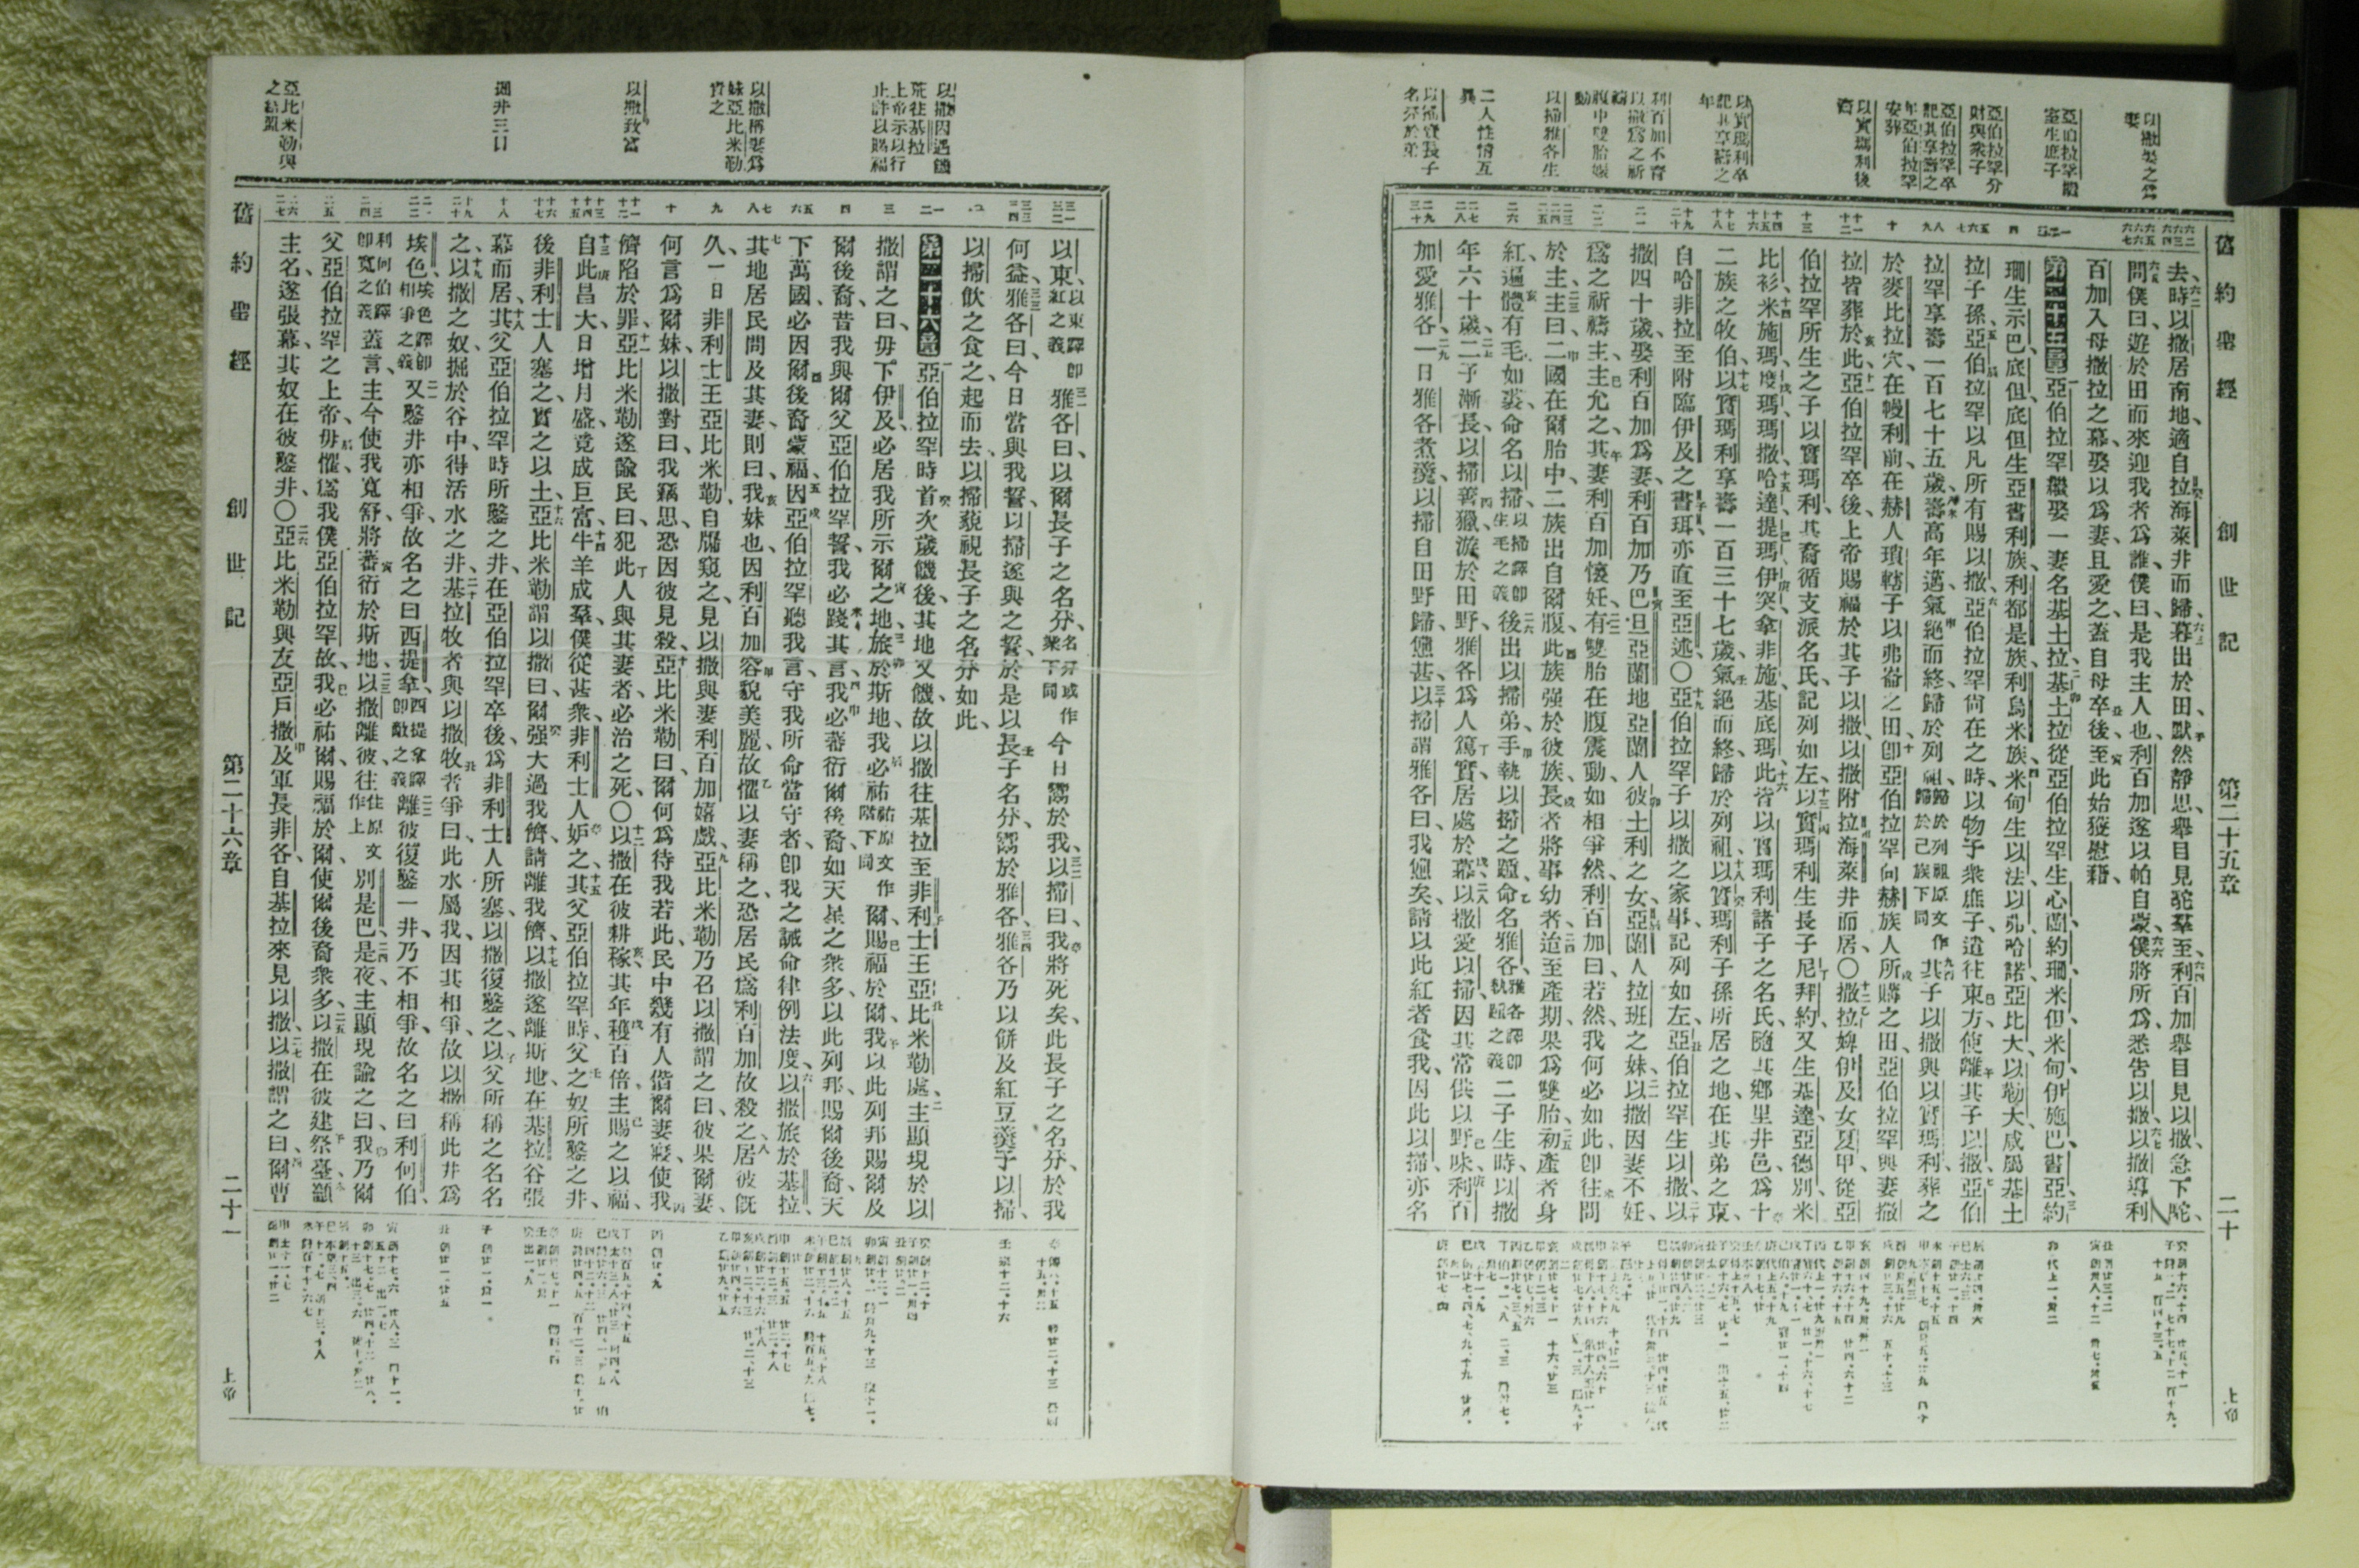 舊約聖經 創世記 第二十五章 二十 上帝
以撒娶之爲妻
亞伯拉罕繼室生庶子
亞伯拉罕分財與衆子
亞伯拉罕卒記其享壽之年亞伯拉罕安葬
以實瑪利後裔
以實瑪利卒記其享壽之年
利百加不育以撒爲之祈禱
腹中雙胎孃動
以掃雅各生
二人性情互異
以掃賣長子名分於弟
去時以撒居南地、適自拉海萊井而歸、暮出於田、默然靜思、舉目見駝羣至、利百加舉目見以撒、急下駝、
問僕曰、遊於田而來迎我者爲誰、僕曰、是我主人也、利百加遂以帕自蒙、僕將所爲悉吿以撒、以撒導利
百加入母撒拉之幕、娶以爲妻、且愛之、蓋自母卒後、至此始獲慰藉、
第二十五章 亞伯拉罕繼娶一妻、名基土拉、基土拉從亞伯拉罕生心蘭、約珊、米但、米甸、伊施巴、書亞、約
珊生示巴、底但、底但生亞書利族、利都是族、利烏米族、米甸生以法、以弗、哈諾、亞比大、以勒大、咸屬基土
拉子孫、亞伯拉罕以凡所有賜以撒、亞伯拉罕尚在之時、以物予衆庶子、遣往東方、使離其子以撒、亞伯
拉罕享壽一百七十五歲、壽高年邁、氣絕而終、歸於列祖、歸於列祖原文作歸於己族下同 其子以撒與以實瑪利、葬之
於麥比拉穴、在幔利前、在赫人瑣轄子以弗崙之田、卽亞伯拉罕向赫族人所購之田、亞伯拉罕與妻撒
拉皆葬於此、亞伯拉罕卒後、上帝賜福於其子以撒、以撒附拉海萊井而居、○撒拉婢伊及女夏甲、從亞
伯拉罕所生之子以實瑪利、其裔循支派名氏記列如左、以實瑪利生長子尼拜約、又生基達、亞德別、米
比衫、米施瑪、度瑪、瑪撒、哈達、提瑪、伊突、拿非施、基底瑪、此皆以實瑪利諸子之名氏、隨其鄉里井邑、爲十
二族之牧伯、以實瑪利享壽一百三十七歲、氣絕而終、歸於列祖、以實瑪利子孫所居之地、在其弟之東、
自哈非拉至附臨伊及之書珥、亦直至亞述、○亞伯拉罕子以撒之家事、記列如左、亞伯拉罕生以撒、以
撒四十歲、娶利百加爲妻、利百加乃巴旦亞蘭地亞蘭人彼土利之女、亞蘭人拉班之妹、以撒因妻不妊、
爲之祈禱主、主允之、其妻利百加懷妊、有雙胎在腹震動、如相爭然、利百加曰、若然、我何必如此、卽往問
於主、主曰、二國在爾胎中、二族出自爾腹、此族强於彼族、長者將事幼者、迨至產期、果爲雙胎、初產者身
紅、遍體有毛如裘、命名以掃、以掃譯卽生毛之義 後出以掃弟、手執以掃之踵、命名雅各、雅各譯卽執踵之義 二子生時、以撒
年六十歲、二子漸長、以掃善獵、游於田野、雅各爲人篤實、居處於幕、以撒愛以掃、因其常供以野味、利百
加愛雅各、一日雅各煮羹、以掃自田野歸、憊甚、以掃謂雅各曰、我憊矣、請以此紅者食我、因此以掃亦名
以撒因遇饑荒往基拉
上帝示以行止許以賜福
以撒稱妻爲妹亞比米勒責之
以撒致富
掘井三口
亞比米勒與之結盟
以東、以東譯卽紅之義 雅各曰、以爾長子之名分、名分或作業下同 今日鬻於我、以掃曰、我將死矣、此長子之名分、於我
何益、雅各曰、今日當與我誓、以掃遂與之誓、於是以長子名分、鬻於雅各、雅各乃以餅及紅豆羹予以掃、
以掃飲之食之、起而去、以掃藐視長子之名分如此、
第二十六章 亞伯拉罕時、首次歲饑、後其地又饑、故以撒往基拉、至非利士王亞比米勒處、主顯現於以
撒、謂之曰、毋下伊及、必居我所示爾之地、旅於斯地、我必祐祐原文作偕下同 爾、賜福於爾、我以此列邦賜爾及
爾後裔、昔我與爾父亞伯拉罕誓、我必踐其言、我必蕃衍爾後裔、如天星之衆多、以此列邦、賜爾後裔、天
下萬國、必因爾後裔蒙福、因亞伯拉罕聽我言、守我所命當守者、卽我之誡命律例法度、以撒旅於基拉、
其地居民問及其妻、則曰、我妹也、因利百加容貌美麗、故懼以妻稱之、恐居民爲利百加故殺之、居彼旣
久、一日非利士王亞比米勒、自牖窺之、見以撒與妻利百加嬉戲、亞比米勒乃召以撒謂之曰、彼果爾妻、
何言爲爾妹、以撒對曰、我竊思、恐因彼見殺、亞比米勒曰、爾何爲待我若此、民中幾有人偕爾妻寢、使我
儕陷於罪、亞比米勒遂諭民曰、犯此人與其妻者、必治之死、○以撒在彼耕稼、其年穫百倍、主賜之以福、
自此昌大、日增月盛、竟成巨富、牛羊成羣、僕從甚衆、非利士人妒之、其父亞伯拉罕時、父之奴所鑿之井、
後非利士人塞之、實之以土、亞比米勒謂以撒曰、爾强大過我儕、請離我儕、以撒遂離斯地、在基拉谷張
幕而居、其父亞伯拉罕時所鑿之井、在亞伯拉罕卒後、爲非利士人所塞、以撒復鑿之、以父所稱之名名
之、以撒之奴、掘於谷中、得活水之井、基拉牧者與以撒牧者爭曰、此水屬我、因其相爭、故以撒稱此井爲
埃色、埃色譯卽相爭之義 又鑿井亦相爭、故名之曰西提拿、西提拿譯卽敵之義 離彼復鑿一井、乃不相爭、故名之曰利何伯、
利何伯譯卽寬之義 蓋言、主今使我寬舒、將蕃衍於斯地、以撒離彼、往往原文作上 別是巴、是夜、主顯現諭之曰、我乃爾
父亞伯拉罕之上帝、毋懼、爲我僕亞伯拉罕故、我必祐爾、賜福於爾、使爾後裔衆多、以撒在彼建祭臺、籲
主名、遂張幕、其奴在彼鑿井、○亞比米勒與友亞戶撒及軍長非各、自基拉來見以撒、以撒謂之曰、爾曹
舊約聖經 創世記 第二十六章 二十一 上帝